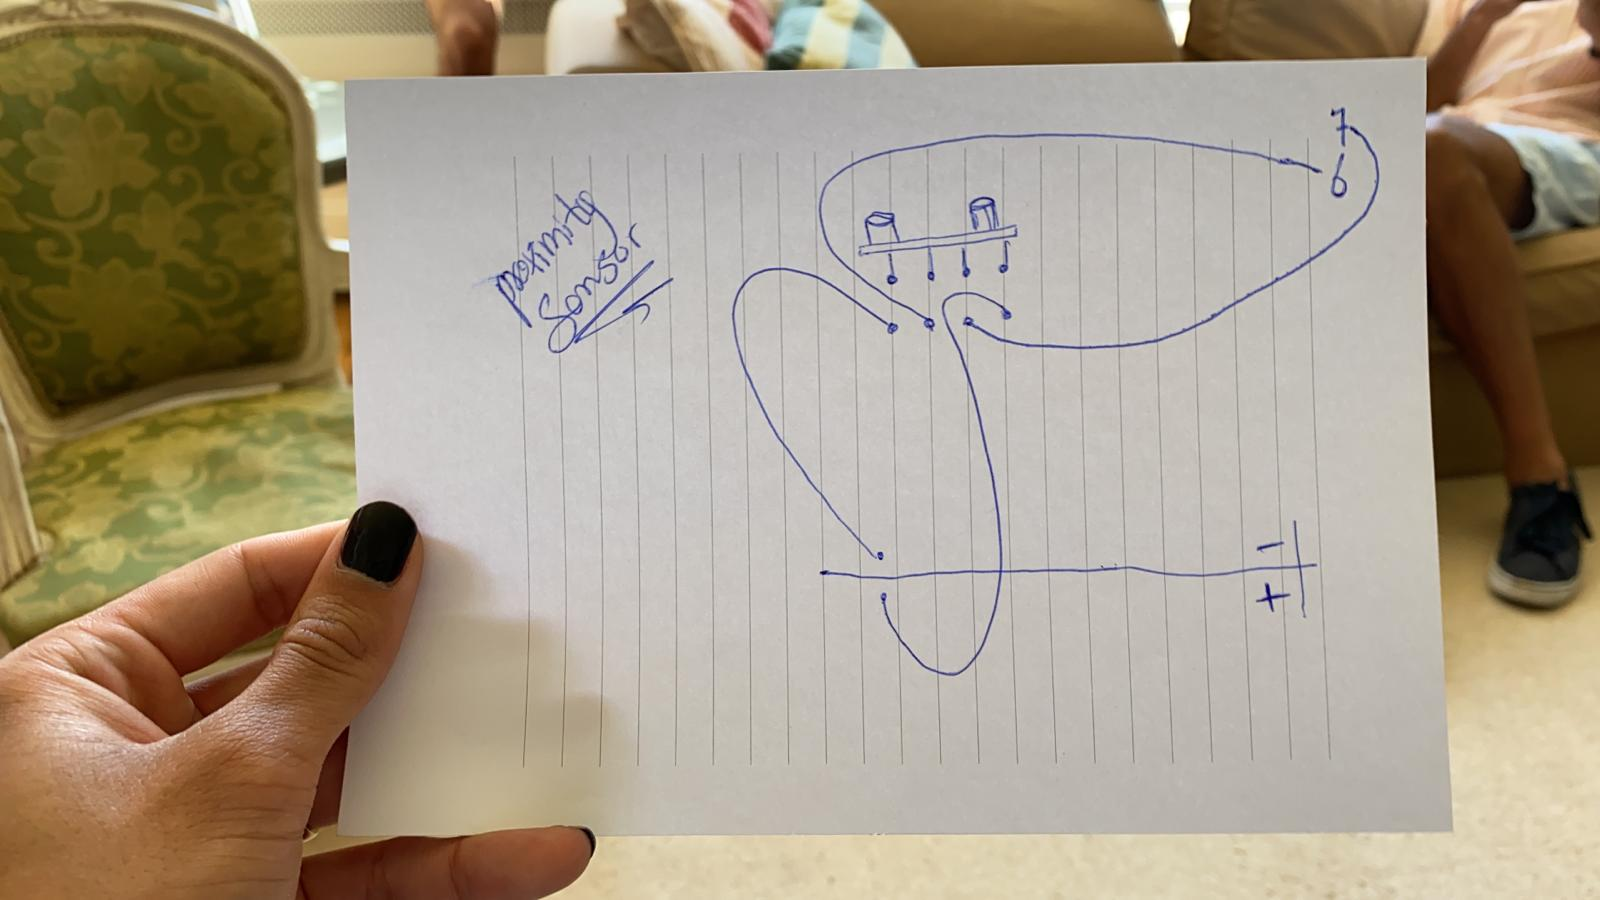 Proximity
Sensor
7
6
-
+